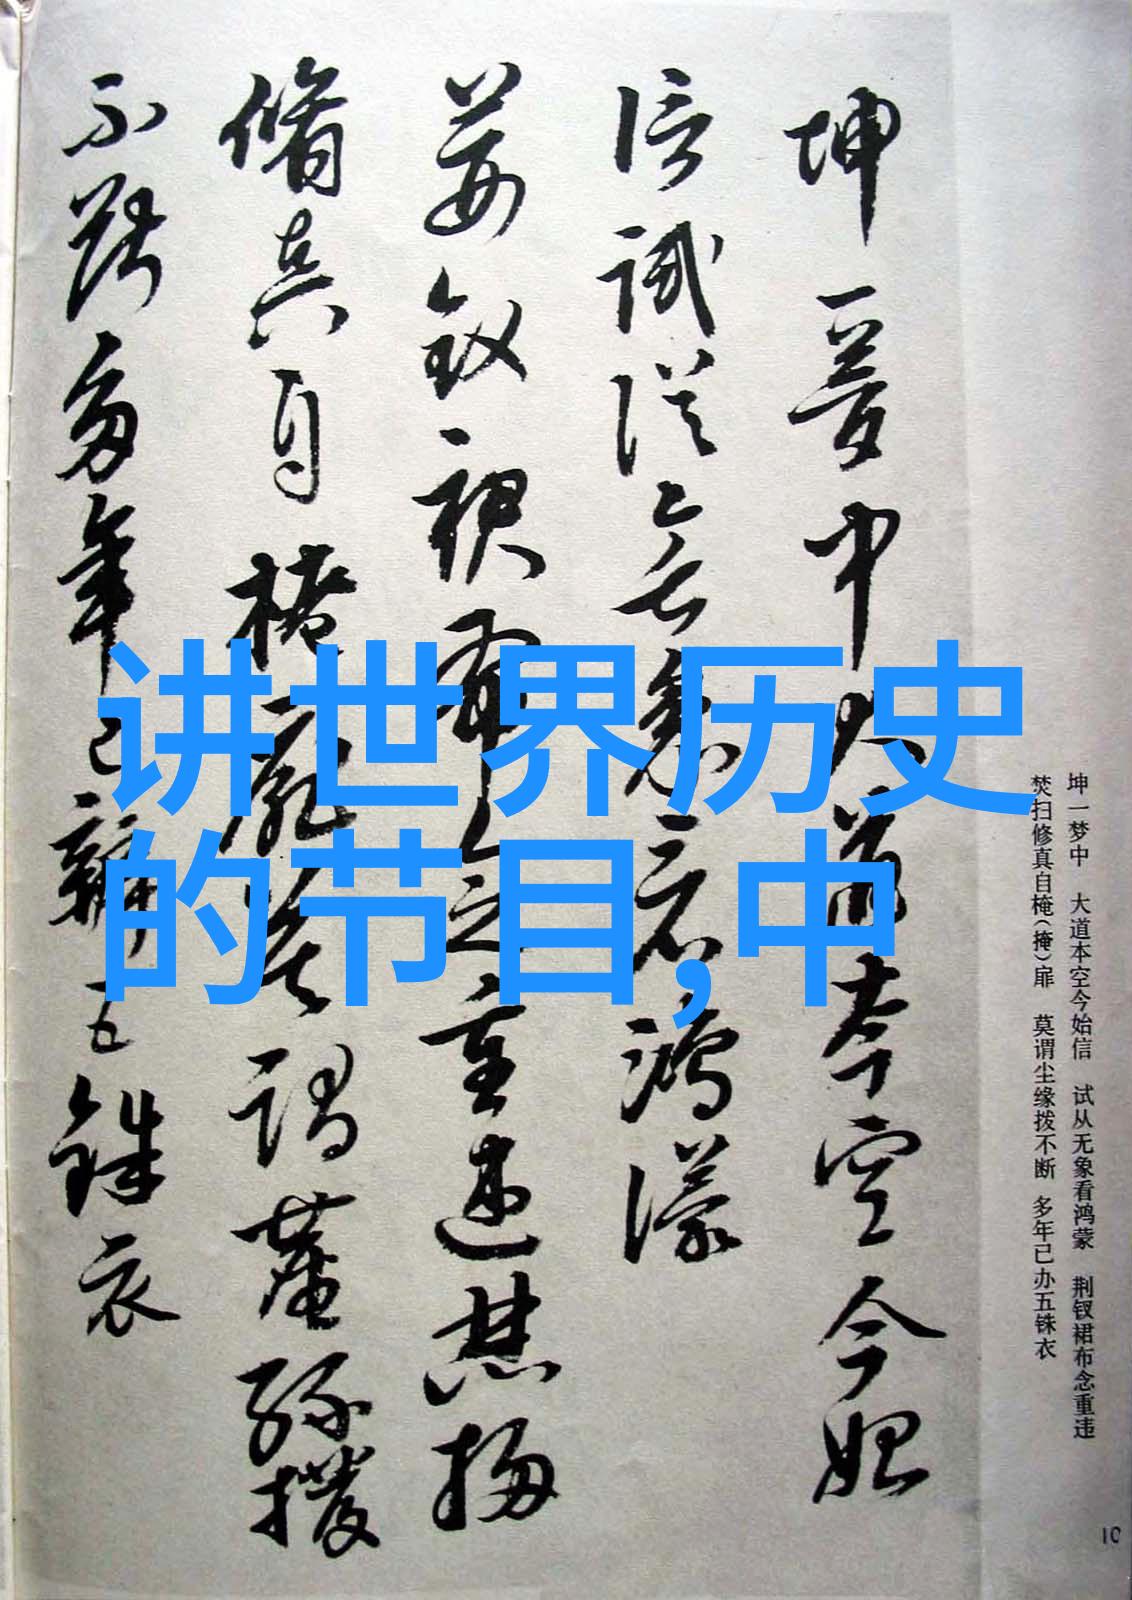 坤一夢中大道本空今始
信試從无象看鴻濛
荊釵裙布念重違焚掃
脩真自掩扉莫謂塵緣撥
不斷多年已辦五銖衣
讲世界历史
的节目,中
坤一梦中　大道本空今始信　试从无象看鸿蒙　荆钗裙布念重违
焚扫修真自（掩）扉　莫谓尘缘拨不断　多年已办五铢衣
10